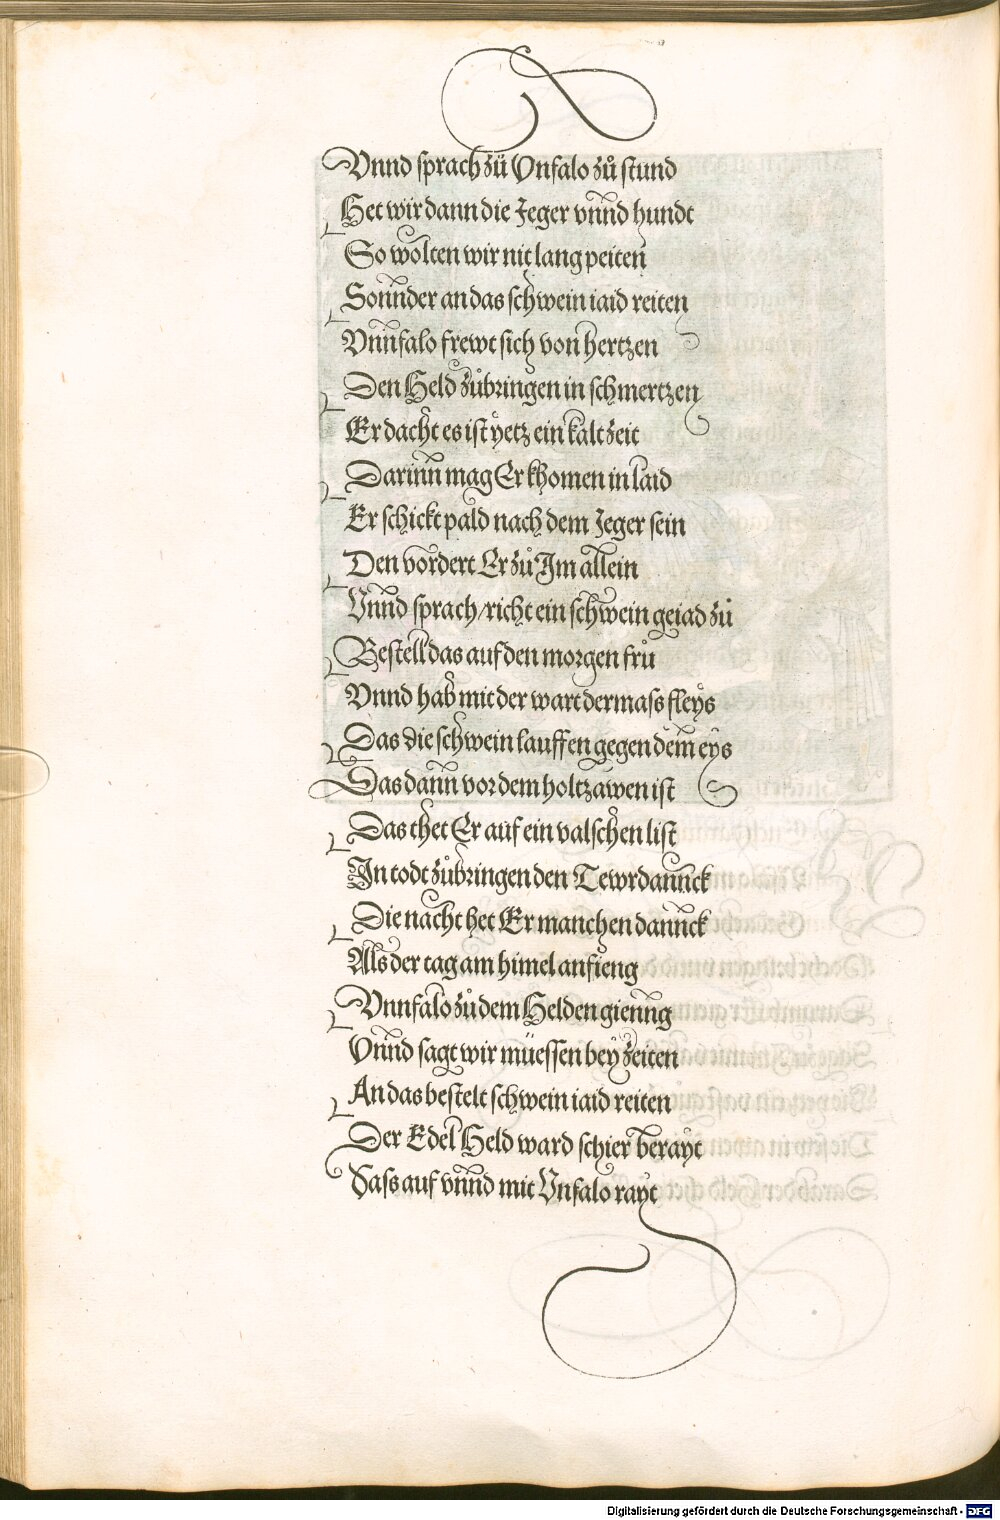 Vnnd sprach zů Vnfalo zů stund
Het wir dann die Jeger vnnd hundt
So wolten wir nit lang peiten
Sonnder an das schwein iaid reiten
Vnnfalo frewt sich von hertzen
Den Held zůbringen in schmertzen
Er dacht es ist yetz ein kalt zeit
Darinn mag Er khomen in laid
Er schickt pald nach dem Jeger sein
Den vordert Er zů Im allein
Vnnd sprach / richt ein schwein geiad zů
Bestell das auf den morgen frů
Vnnd hab mit der wart dermass fleÿs
Das die schwein lauffen gegen dem eÿs
Das dann vor dem holtz awen ist
Das thet Er auf ein valschen list
In todt zůbringen den Tewrdannck
Die nacht het Er manchen dannck
Als der tag am himel anfieng
Vnnfalo zů dem Helden gienng
Vnnd sagt wir müessen beÿ zeiten
An das bestelt schwein iaid reiten
Der Edel Held ward schier berayt
Sass auf vnnd mit Vnfalo rayt
Digitalisierung gefördert durch die Deutsche Forschungsgemeinschaft - DFG